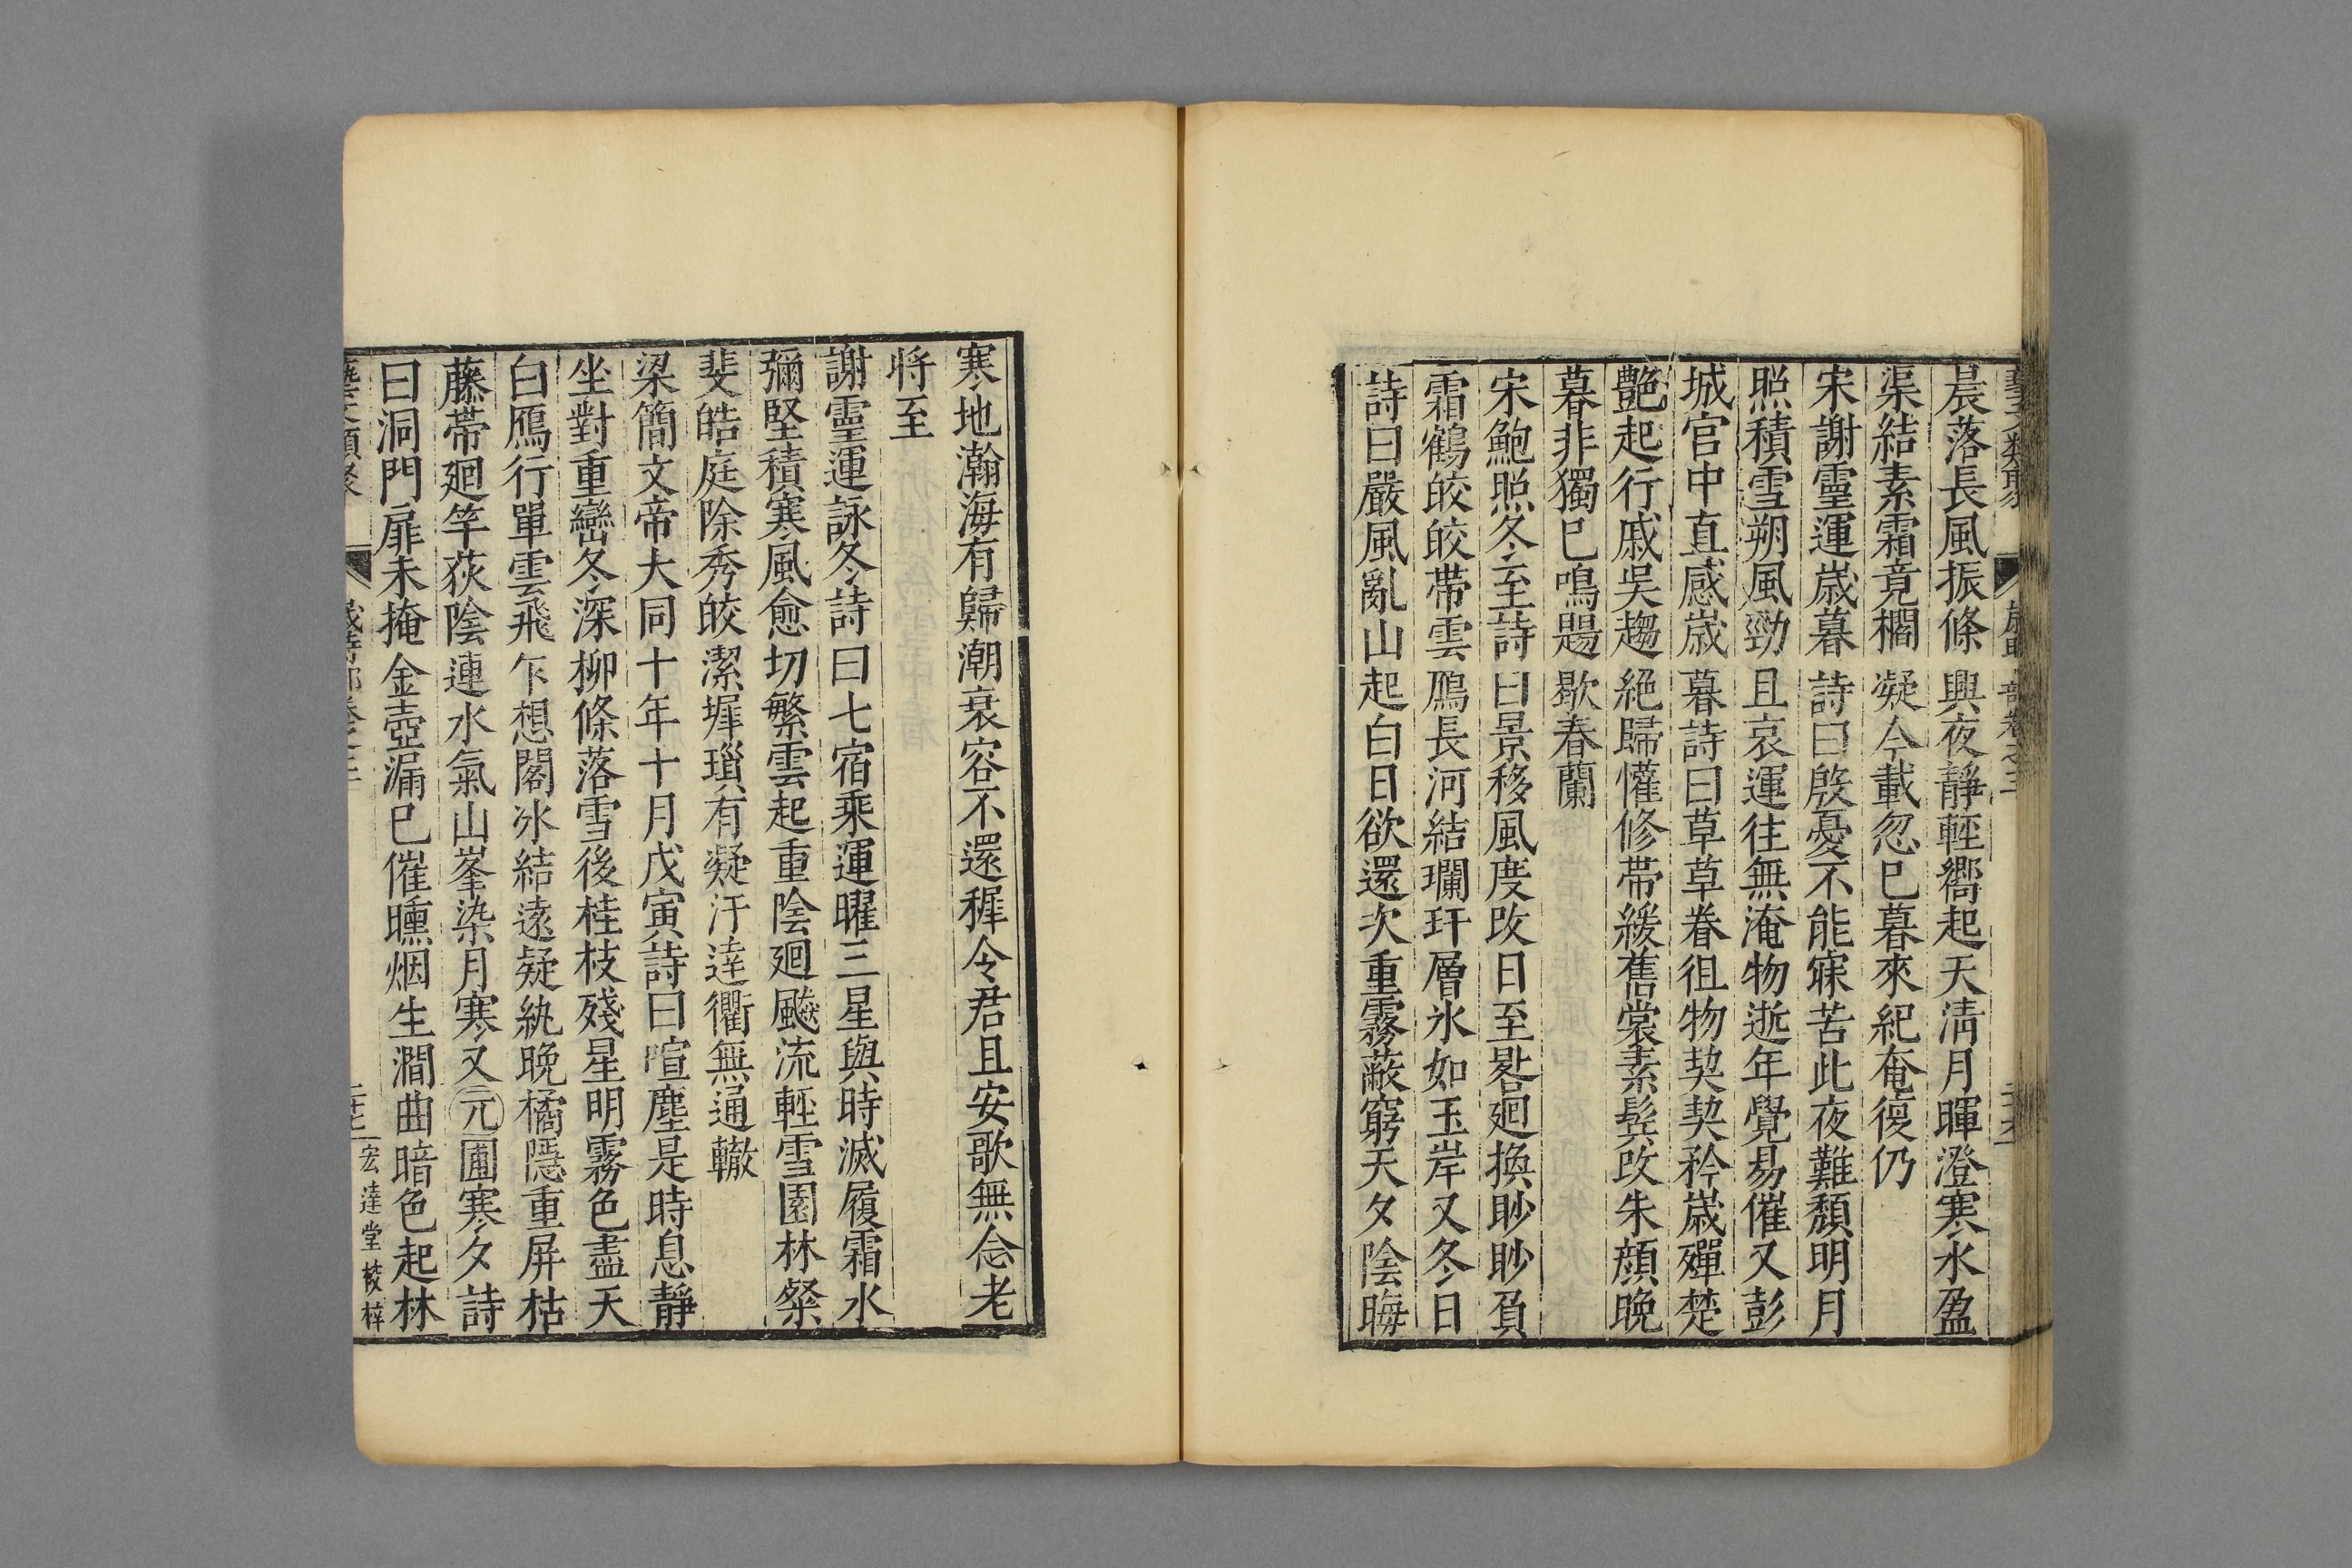 藝文類聚 歲時部卷之三 二十六
晨落長風振條興夜靜輕嚮起天清月暉澄寒水盈
渠結素霜竟櫩凝今載忽已暮來紀奄復仍
宋謝靈運歲暮詩曰殷憂不能寐苦此夜難頹明月
照積雪朔風勁且哀運往無淹物逝年覺易催又彭
城宮中直感歲暮詩曰草草眷徂物契契矜歲殫楚
艷起行戚吳趨絕歸懽修帶緩舊裳素鬂改朱顏晚
暮悲獨已鳴鶗歇春蘭
宋鮑照冬至詩曰景移風度改日至晷廻換眇眇負
霜鶴皎皎帶雲鴈長河結瓓玕層氷如玉岸又冬日
詩曰嚴風亂山起白日欲還次重霧蔽窮天夕陰晦
寒地瀚海有歸潮衰容不還穉令君且安歌無念老
將至
謝靈運詠冬詩曰七宿乘運曜三星與時滅履霜水
彌堅積寒風愈切繁雲起重陰廻飈流輕雪園林粲
斐皓庭除秀皎潔墀瑣有凝汙逵衢無通轍
梁簡文帝大同十年十月戊寅詩曰喧塵是時息靜
坐對重巒冬深柳條落雪後桂枝殘星明霧色盡天
白鴈行單雲飛乍想閣氷結遠疑紈晚橘隱重屏枯
藤帶廻竿荻陰連水氣山峯染月寒又元圃寒夕詩
曰洞門扉未掩金壺漏已催曛烟生澗曲暗色起林
藝文類聚 歲時部卷之三 二十七 宏達堂校梓